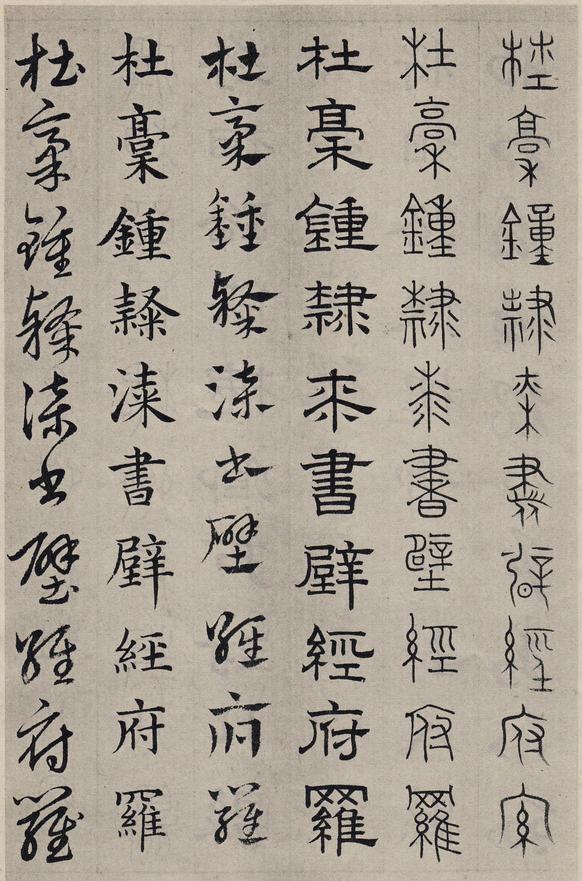 杜稾鍾隸桼書壁經府羅
杜稾鍾隸桼書壁經府羅
杜稾鍾隸桼書壁經府羅
杜稾鍾隸漆書壁經府羅
杜稾鍾隸漆書壁經府羅
杜稾鍾隸漆書壁經府羅